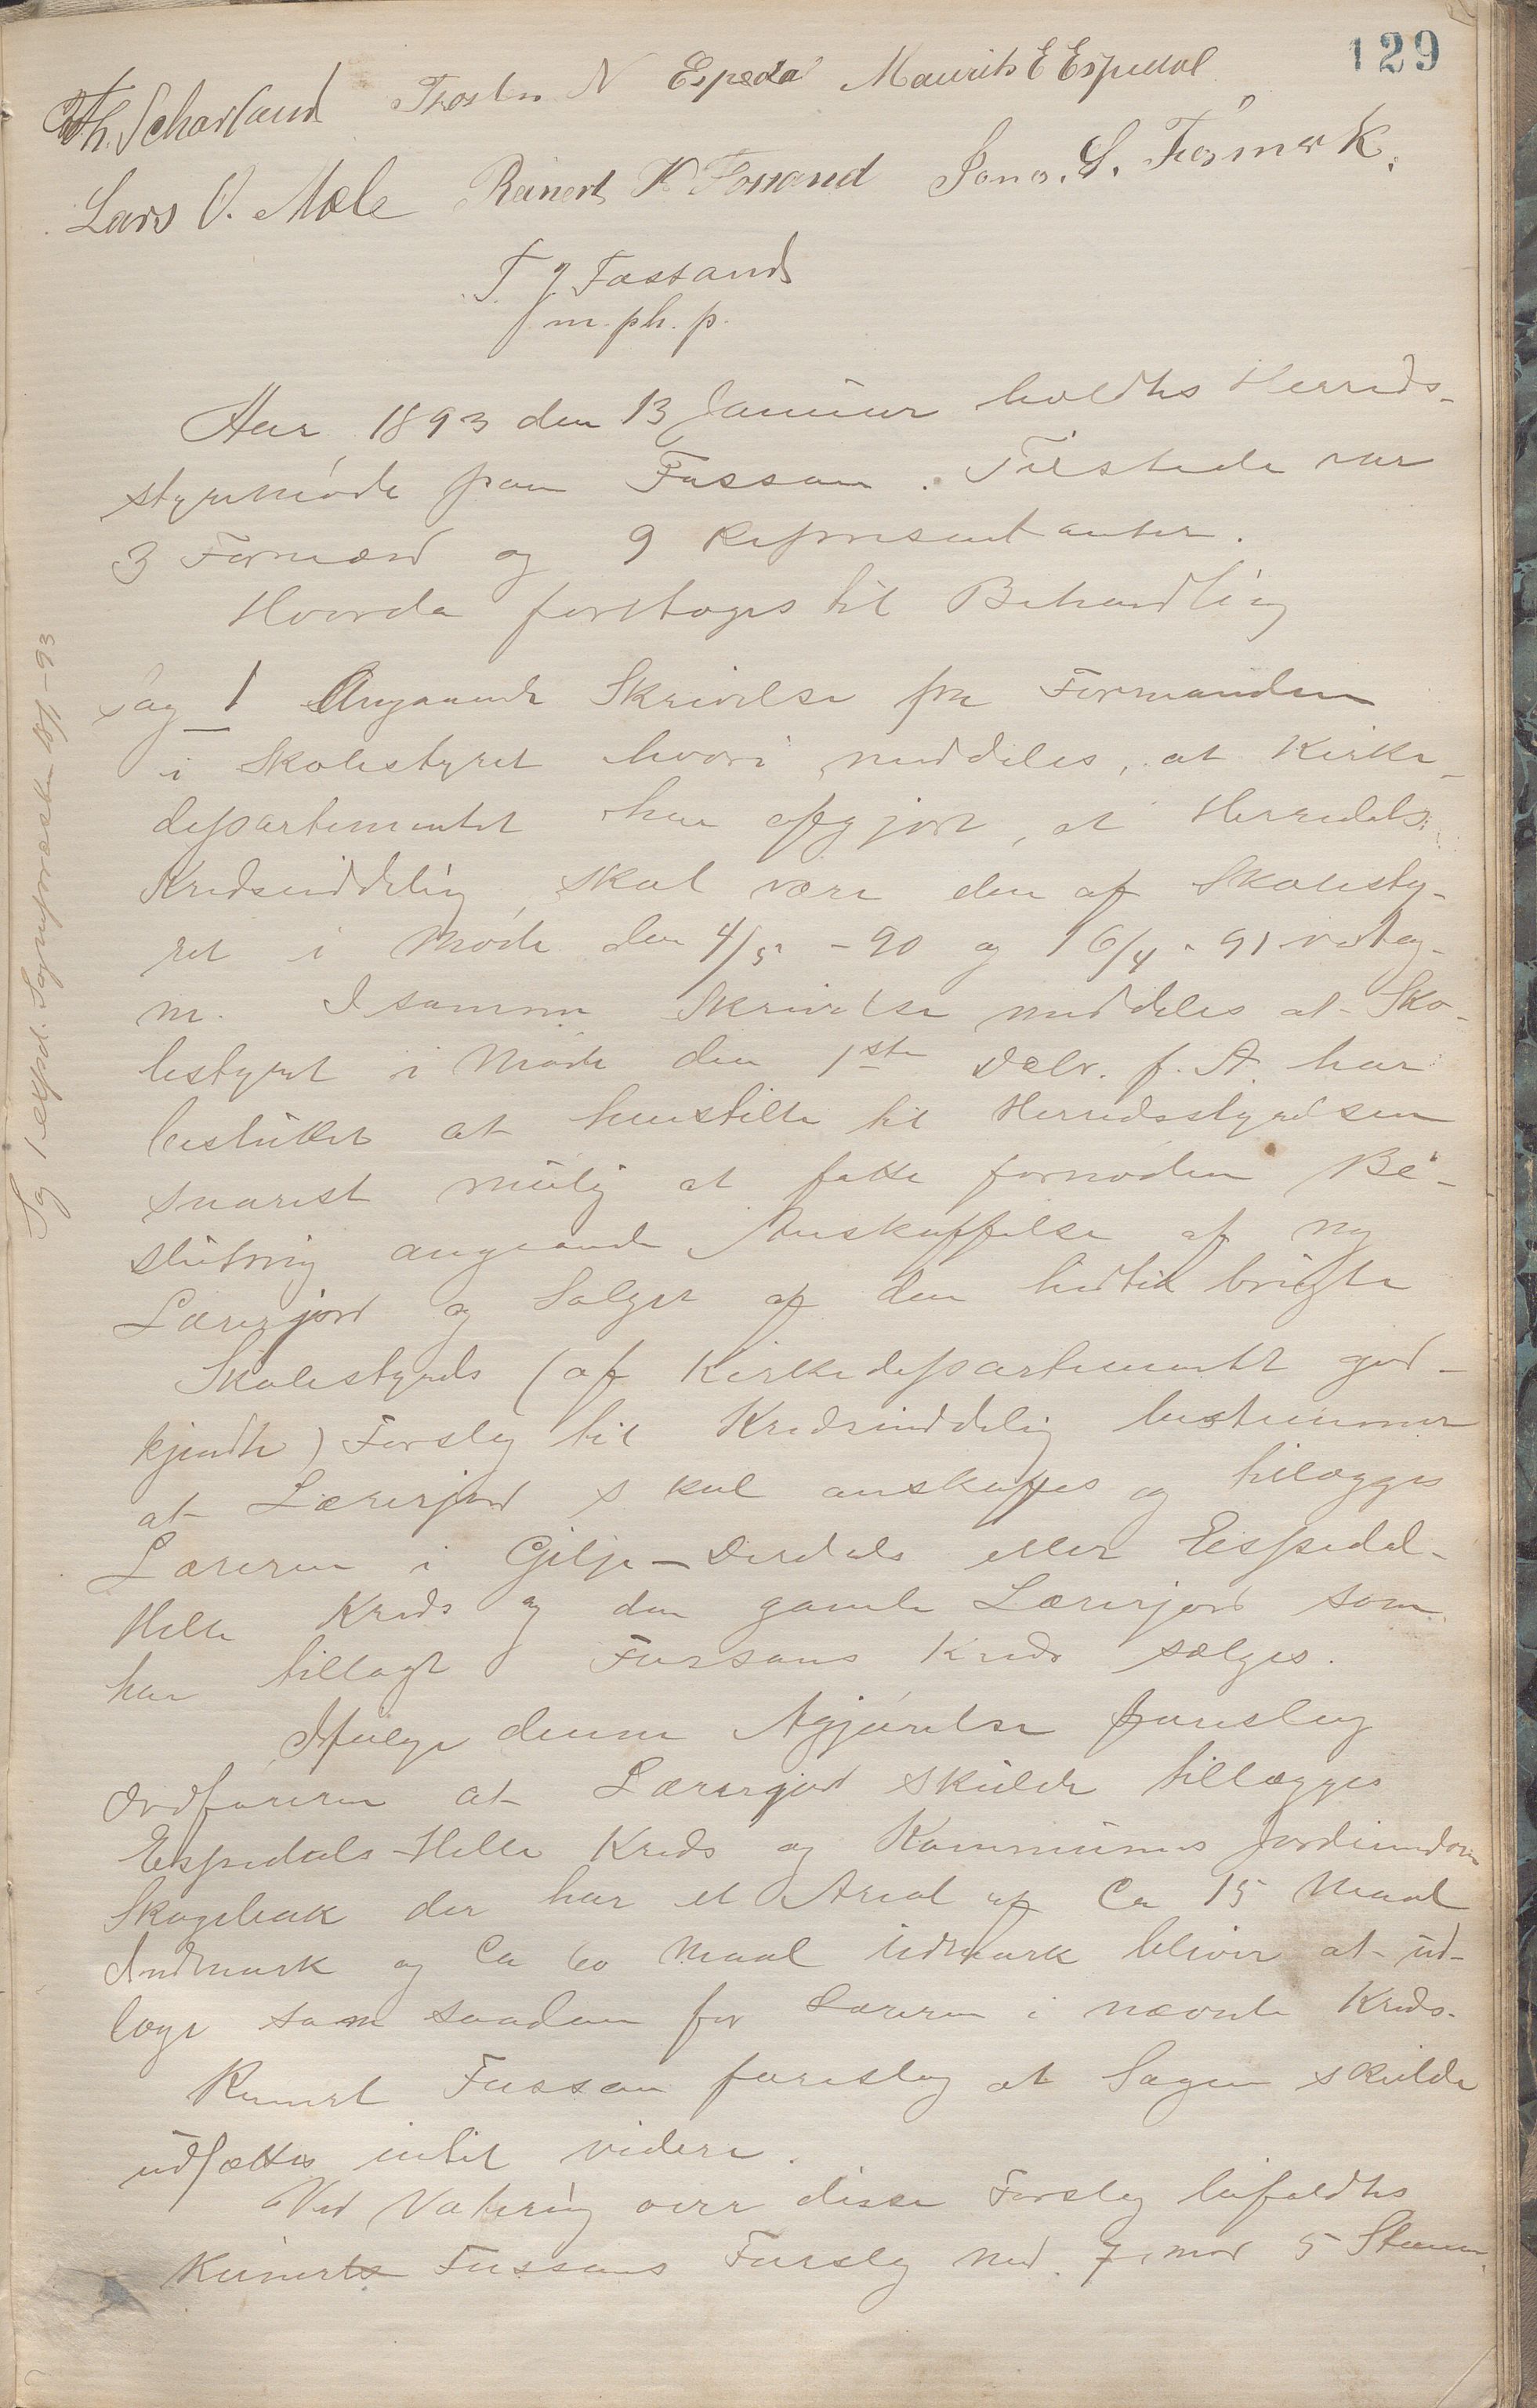 129
Th. Scharland Thosten N Espeda Maurits E Espedal
Lars O. Mæle Reinert K Fossand Jonas. S. Frøsmrk.
T J Fossand
m. ph. p.
Aar 1893 den 13 Januar holdtes Herreds-
styremøde paa Fossan. Tilstede var
3 Formænd og 9 Representanter.
Hvorda foretoges til Behandling
Sag 1 Angaaende Skrivelse fra Formanden
i Skolestyret hvori meddeles, at Kirke-
departementet har afgjort, at Herredets
Kredsinddeling skal være den af Skolesty-
ret i Møde den 4/5 - 90 og 16/4 - 91 vedtag-
ne. I samme Skrivelse meddeles at Sko-
lestyret i Møde den 1ste Decbr. f. A. har
besluttet at henstille til Herredsstyrelsen
snarest mulig at fatte fornøden Be-
slutning angaaende Anskaffelse af ny
Lærerjord og Salget af den hidtil brugte
Skolestyrets (af Kirkedepartementet god-
kjendte) Forslag til Kredsinddeling bestemmer
at Lærerjord skal anskaffes og tillægges
Læreren i Gilje-Dirdals eller Espedal-
Helle Kreds og den gamle Lærerjord som
har tillagt Fossans Kreds sælges.
Ifølge denne Afgjørelse foreslog
Ordføreren at Lærerjord skulde tillægges
Espedals-Helle Kreds og Kommunens Jordeiendom
Skogebak der har et Areal af Ca 15 Maal
Indmark og Ca 60 Maal Udmark bliver at ud-
lægge som saadan for Læreren i nævnte Kreds.
Reinert Fossan foreslog at Sagen skulde
udsættes indtil videre.
Ved Votering over disse Forslag bifaldtes
Reinerts Fossans Forslag med 7 mod 5 Stemmer.
Sag 1 expd. Sognepræsten 18/1 - 93